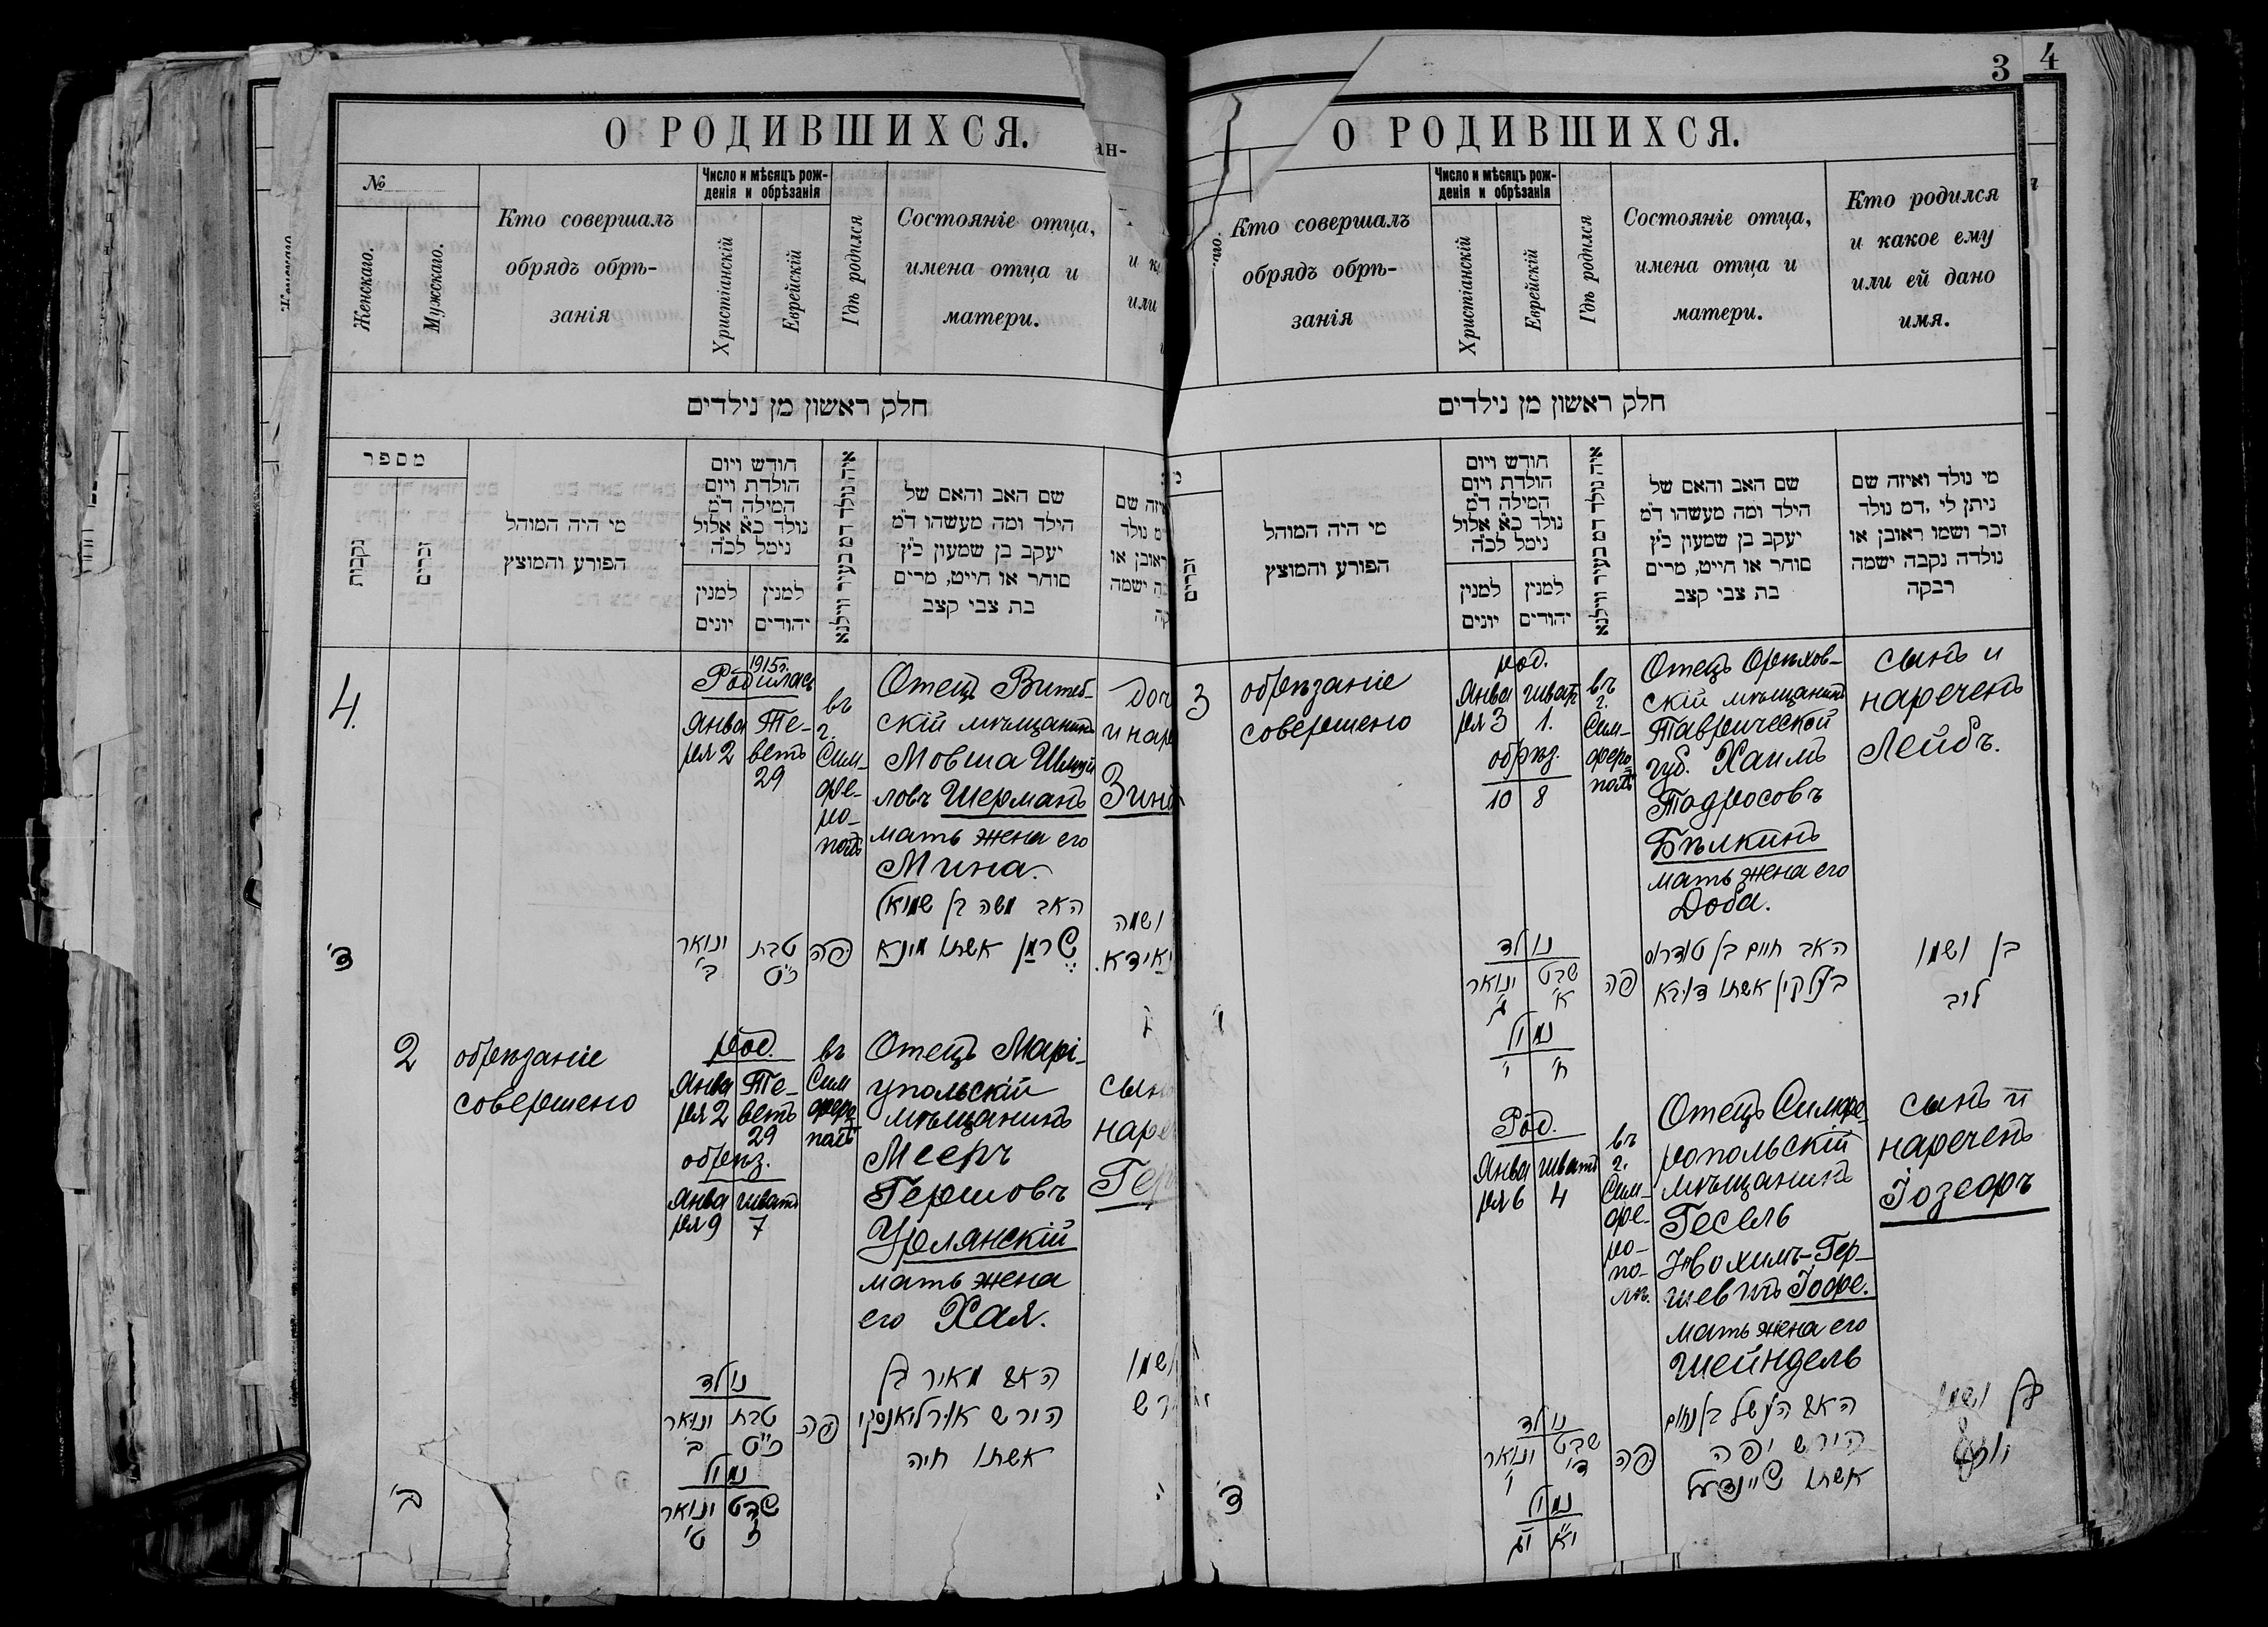 3 4
О РОДИВШИХСЯ.
№
Женскаго.
Мужскаго.
Кто совершалъ
обрядъ обрѣ-
занія
Число и мѣсяцъ рож-
денія и обрѣзанія
Христіанскій
Еврейскій
Гдѣ родился
Состояніе отца,
имена отца и
матери.
и к
или
חלק ראשון מן נילדים
מספר
נקבות
זכרים
מי היה המוהל
הפורע והמוצץ
חודש ויום
הולדת ויום
המילה ד"מ
נולד כ"א אלול
נימל לכ"ה
למנין
יונים
למנין
יהודים
איה נולד דמ בעיר ווילנא
שם האב והאם של
הילד ומה מעשהו ד"מ
יעקב בן שמעון כ"ץ
סוחר או חייט, מרים
בת צבי קצב
איזה שם
נולד
ראובן או
ישמה
4.
1915г.
Родилась
Янва
ря 2
Те-
ветъ
29
въ
г.
Сим-
фе-
ро-
полѣ
Отецъ Витеб-
скій мѣщанинъ
Мовша Шмуй
ловъ Шерманъ
мать жена его
Мина.
Доч
и наре
Зина
האב משה בן שמואל
שרמן אשתו מינא
ושמה
ד'
ינואר
ב'
טבת
כ"ט
פה
2
обрѣзаніе
совершено
род.
Янва
ря 2
Те-
ветъ
29
обрѣз.
Янва
ря 9
шватъ
7
въ
Сим
феро
полѣ
Отецъ Марі-
упольскій
мѣщанинъ
Мееръ
Гершовъ
Урлянскій
мать жена
его Хая.
сынъ
наре
Гер
נולד
ינואר
ב'
טבת
כ"ט
פה
נמול
ינואר
ט'
שבט
ז
האב מאיר בן
הירש אורליאנסקי
אשתו חיה
ושמו
ב'
О РОДИВШИХСЯ.
Кто совершалъ
обрядъ обрѣ-
занія
Число и мѣсяцъ рож-
денія и обрѣзанія
Христіанскій
Еврейскій
Гдѣ родился
Состояніе отца,
имена отца и
матери.
Кто родился
и какое ему
или ей дано
имя.
חלק ראשון מן נילדים
זכרים
מי היה המוהל
הפורע והמוצץ
חודש ויום
הולדת ויום
המילה ד"מ
נולד כ"א אלול
נימל לכ"ה
למנין
יונים
למנין
יהודים
איה נולד דמ בעיר ווילנא
שם האב והאם של
הילד ומה מעשהו ד"מ
יעקב בן שמעון כ"ץ
סוחר או חייט, מרים
בת צבי קצב
מי נולד ואיזה שם
ניתן לי, דמ נולד
זכר ושמו ראובן או
נולדה נקבה ישמה
רבקה
3
обрѣзаніе
совершено
род.
Янва
ря 3
шватъ
1.
обрѣз.
10 8
въ
г.
Сим-
феро
полѣ
Отецъ Орѣхов-
скій мѣщанинъ
Таврической
губ. Хаимъ
Тодросовъ
Бѣлкинъ
мать жена его
Доба.
сынъ и
нареченъ
Лейбъ.
נולד
ינואר
ג'
שבט
א'
פה
נמול
י'
ח'
האב חיים בן טודרוס
בעלקין אשתו דובא
בן ושמו
ליב
Род.
Янва
ря 6
шватъ
4
въ
г.
Сим-
фе-
ро-
по-
лѣ.
Отецъ Симфе
ропольскій
мѣщанинъ
Гесель
Нвохимъ-Гер-
шевичъ Іофе.
мать жена его
Шейндель
сынъ и
нареченъ
Іозефъ
ד'
נולד
ינואר
ו'
שבט
ד'
פה
נמול
י"ג
י"א
האב העשל בן נחום
הירש יפה
אשתו שיינדעל
בן ושמו